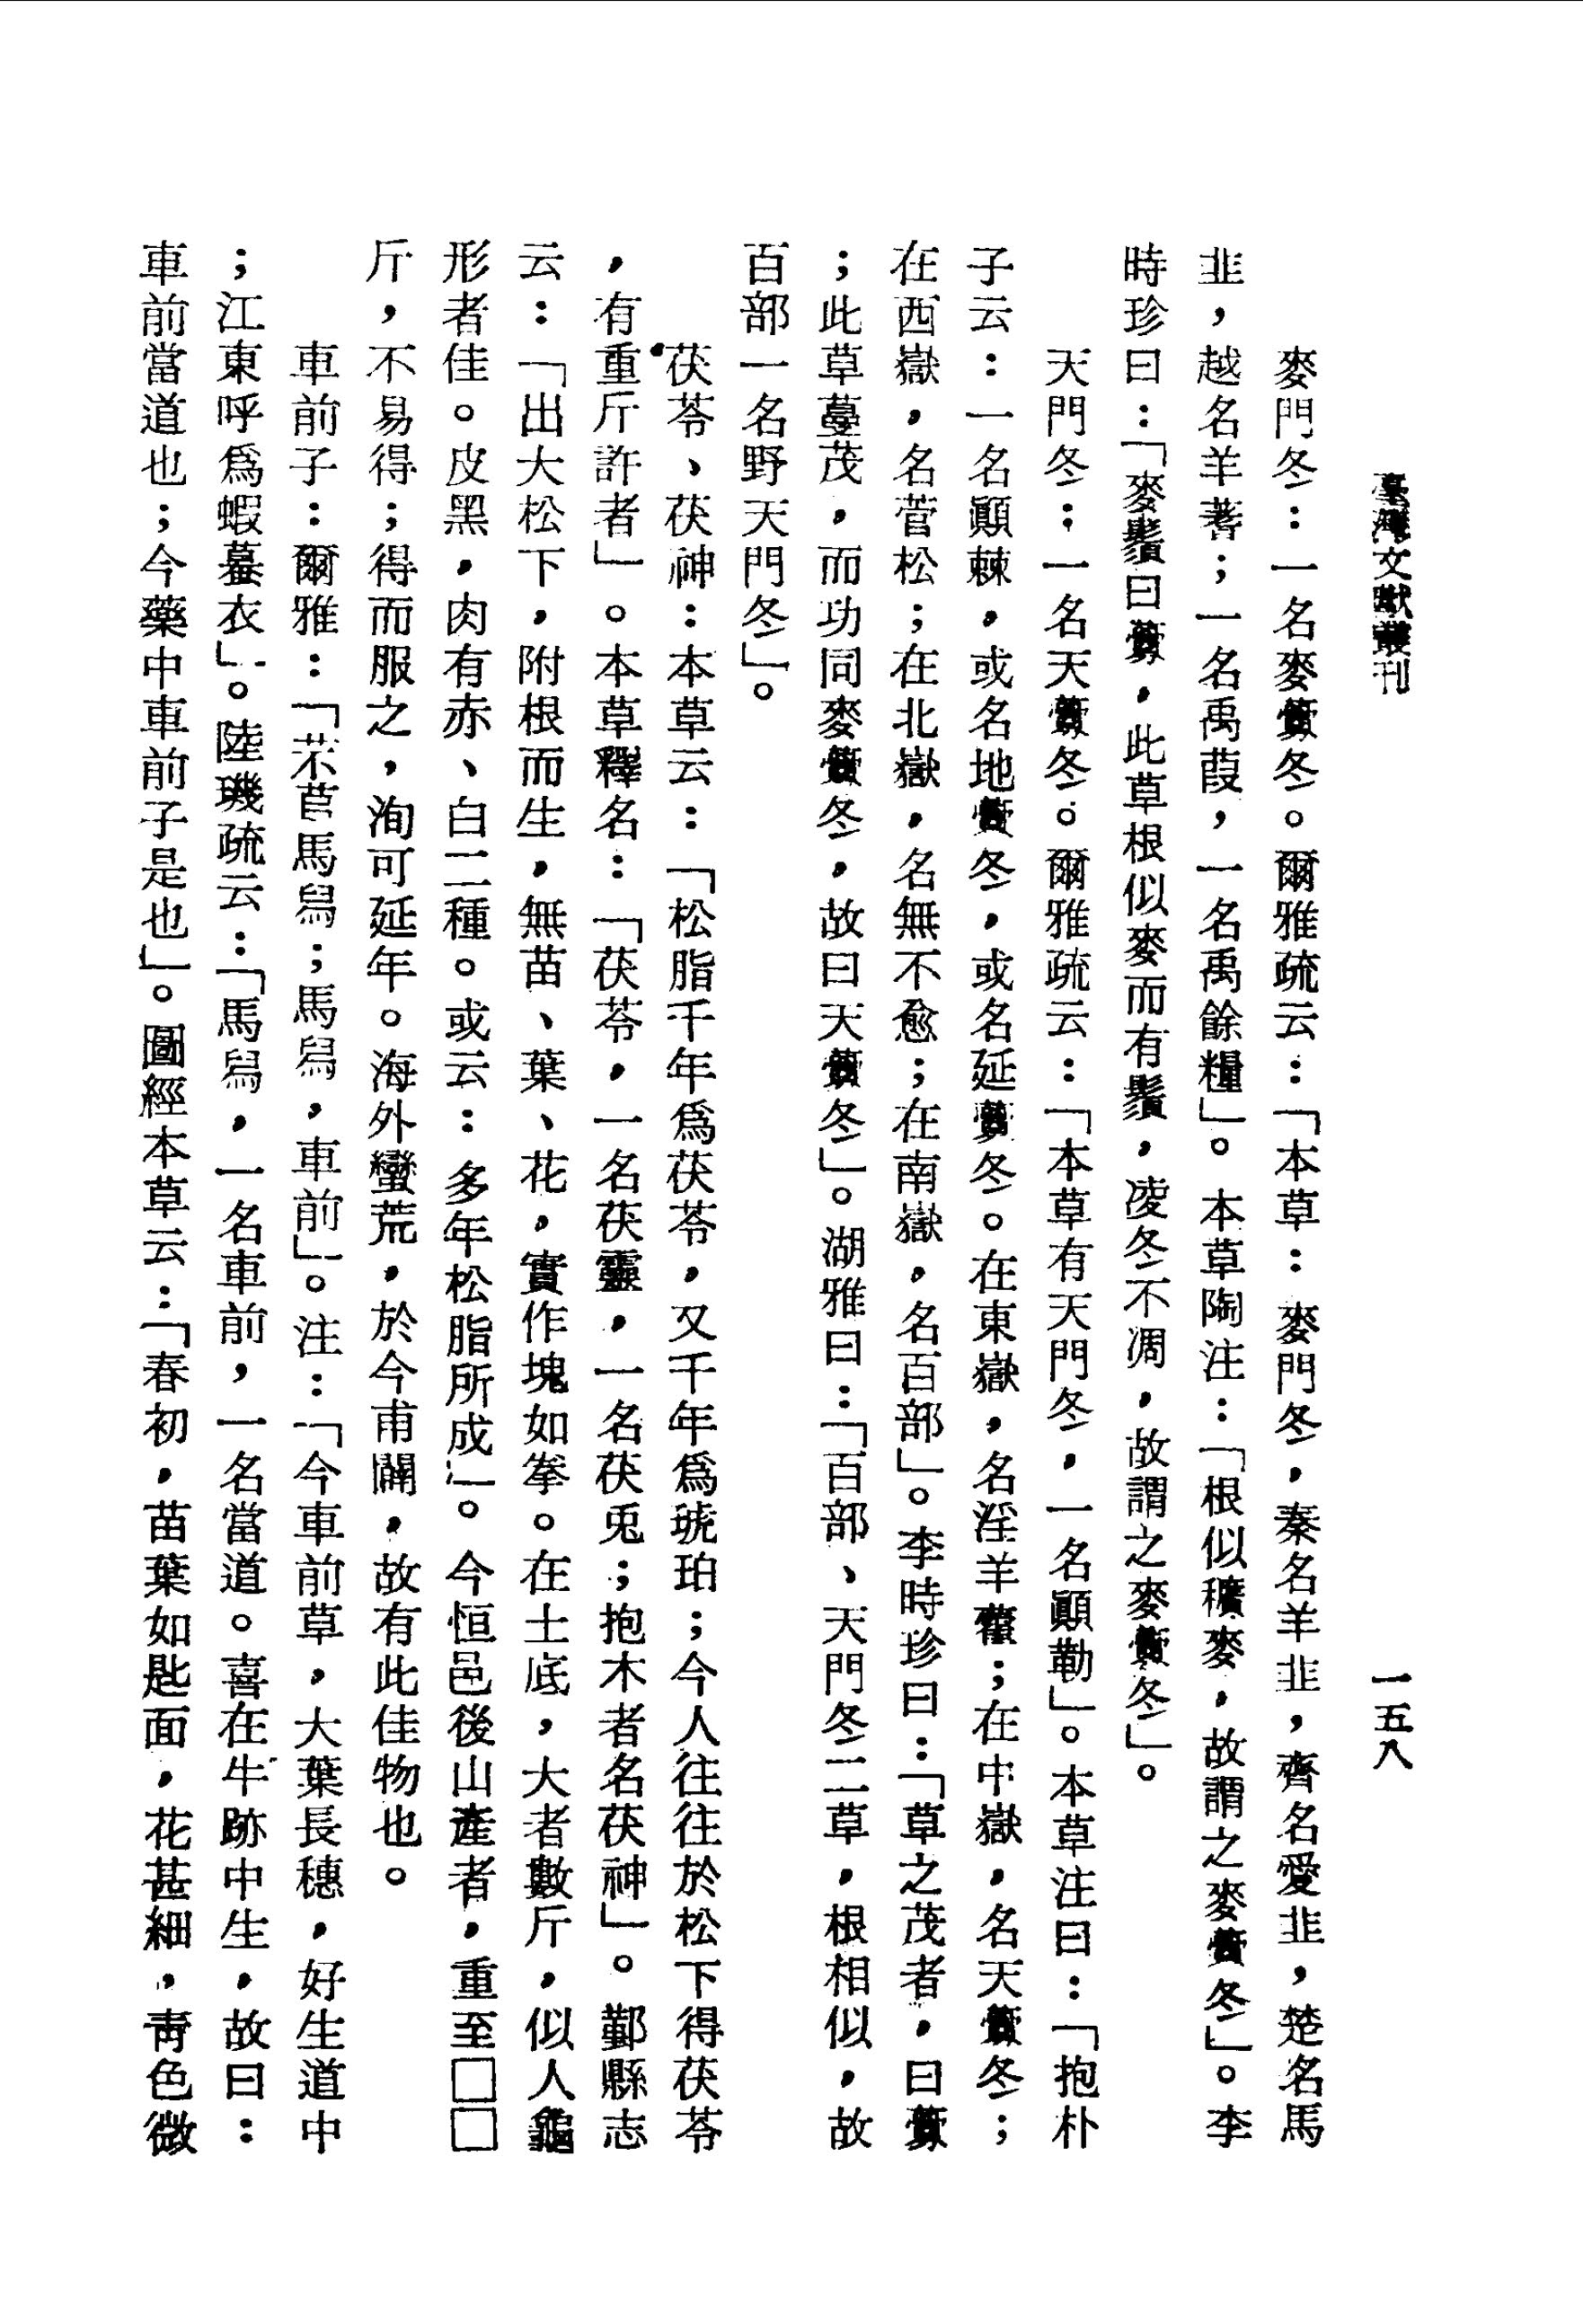 臺灣文獻叢刊
一五八
麥門冬：一名麥虋冬。爾雅疏云：「本草：麥門冬，秦名羊韭，齊名愛韭，楚名馬
韭，越名羊蓍；一名禹葭，一名禹餘糧」。本草陶注：「根似穬麥，故謂之麥虋冬」。李
時珍曰：「麥鬚曰虋，此草根似麥而有鬚，凌冬不凋，故謂之麥虋冬」。
天門冬：一名天虋冬。爾雅疏云：「本草有天門冬，一名顚勒」。本草注曰：「抱朴
子云：一名顚棘，或名地虋冬，或名延虋冬。在東嶽，名淫羊藿；在中嶽，名天虋冬；
在西嶽，名菅松；在北嶽，名無不愈；在南嶽，名百部」。李時珍曰：「草之茂者，曰虋
；此草蔓茂，而功同麥虋冬，故曰天虋冬」。湖雅曰：「百部、天門冬二草，根相似，故
百部一名野天門冬」。
茯苓、茯神：本草云：「松脂千年爲茯苓，又千年爲琥珀；今人往往於松下得茯苓
，有重斤許者」。本草釋名：「茯苓，一名茯靈，一名茯兎；抱木者名茯神」。鄞縣志
云：「出大松下，附根而生，無苗、葉、花，實作塊如拳。在土底，大者數斤，似人龜
形者佳。皮黑，肉有赤、白二種。或云：多年松脂所成」。今恒邑後山產者，重至□□
斤，不易得；得而服之，洵可延年。海外蠻荒，於今甫闢，故有此佳物也。
車前子：爾雅：「芣苢馬舄；馬舄，車前」。注：「今車前草，大葉長穗，好生道中
；江東呼爲蝦蟇衣」。陸璣疏云：「馬舄，一名車前，一名當道。喜在牛跡中生，故曰：
車前當道也；今藥中車前子是也」。圖經本草云：「春初，苗葉如匙面，花甚細，靑色微